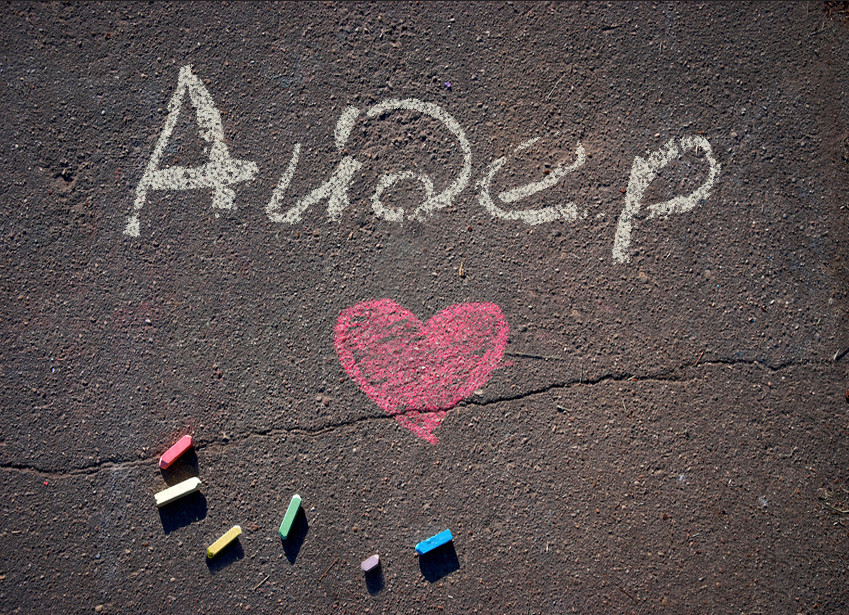 Айдер